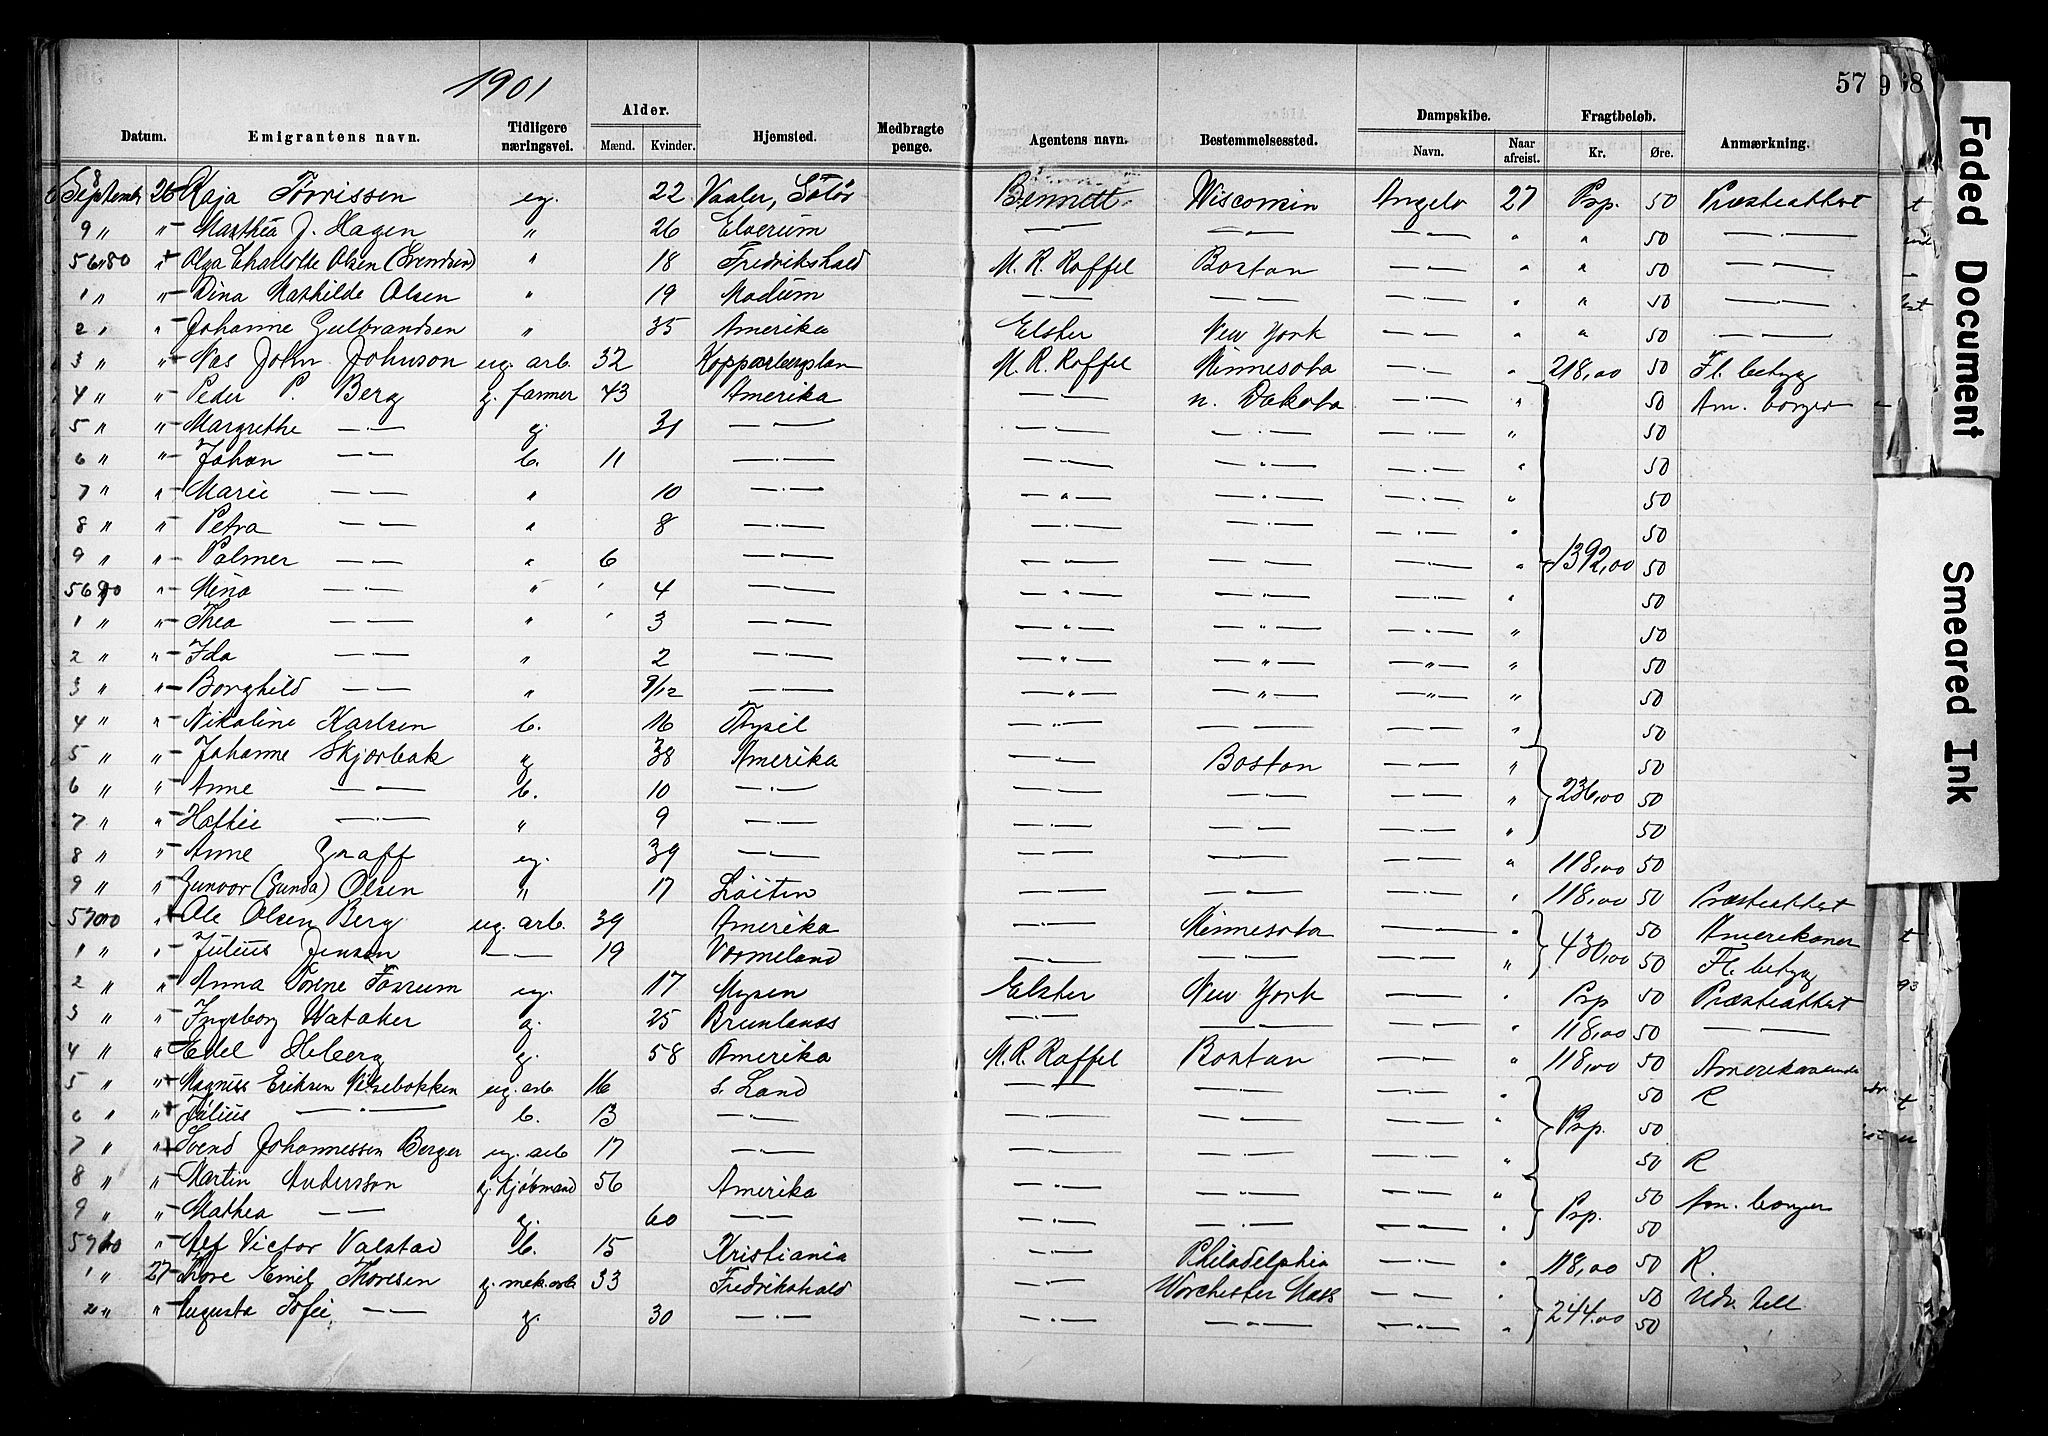 1901
57 9 68
Datum. Emigrantens navn. Tidligere næringsvei. Alder. Mænd. Kvinder. Hjemsted. Medbragte penge. Agentens navn. Bestemmelsessted. Dampskibe. Navn. Naar afreist. Fragtbeløb. Kr. Øre. Anmærkning.
8 September 26 Kaja Torrissen ug. 22 Vaaler, Solør Bennett Wisconsin Angelo 27 Psp. 50 Præsteattest
9 " " Marthea J. Hagen " 26 Elverum —"— —"— —"— " " 50 —"—
5680 " Olga Charlotte Olsen (Svendsen) " 18 Fredrikshald M. R. Roffel Boston —"— " " 50 —"—
1 " " Dina Mathilde Olsen " 19 Modum —"— —"— —"— " " 50 —"—
2 " " Johanne Gulbrandsen " 35 Amerika Elster New York —"— " " 50 —"—
3 " " Nas John Johnson ug. arb. 32 Kopparbergslan M. R. Roffel Minnesota —"— " 218,00 50 Fl. betyg
4 " " Peder P. Berg g. farmer 43 Amerika —"— n. Dakota —"— " 50 Am. borger
5 " " Margrethe —"— g. 31 —"— —"— —"— —"— " 50
6 " " Johan —"— b. 11 —"— —"— —"— —"— " 50
7 " " Marie —"— " 10 —"— —"— —"— —"— " 50
8 " " Petra —"— " 8 —"— —"— —"— —"— " 50
9 " " Palmer —"— " 6 —"— —"— —"— —"— " 1392,00 50
5690 " Mina —"— " 4 —"— —"— —"— —"— " 50
1 " " Thea —"— " 3 —"— —"— —"— —"— " 50
2 " " Ida —"— " 2 —"— —"— —"— —"— " 50
3 " " Borghild —"— " 9/12 —"— —"— —"— —"— " 50
4 " " Nikoline Karlsen b. 16 Trysil —"— —"— —"— " 50
5 " " Johanne Skjorbak g. 38 Amerika —"— Boston —"— " 50
6 " " Anne —"— b. 10 —"— —"— —"— —"— " 236,00 50
7 " " Hattie —"— " 9 —"— —"— —"— —"— " 50
8 " " Anne Graff ug. 39 —"— —"— —"— —"— " 118,00 50
9 " " Gunvor (Gunda) Olsen " 17 Löiten —"— —"— —"— " 118,00 50 Præsteattest
5700 " Ole Olsen Berg ug. arb. 39 Amerika —"— Minnesota —"— " 50 Amerikaner
1 " " Julius Jensen —"— 19 Vermeland —"— —"— —"— " 430,00 50 Fl. betyg
2 " " Anna Torene Fossum ug. 17 Mysen Elster New York —"— " Psp 50 Præsteattest
3 " " Ingeborg Wataker g. 25 Brunlanes —"— —"— —"— " 118,00 50 —"—
4 " " Edel Heberg g. 58 Amerika M. R. Roffel Boston —"— " 118,00 50
5 " " Magnus Eriksen Vilsebakken ug. arb 16 s. Land —"— —"— —"— " 50 R
6 " " Julius —"— b. 13 —"— —"— —"— —"— " Psp. 50
7 " " Svend Johannessen Berger ug. arb 17 —"— —"— —"— —"— " 50 R
8 " " Martin Andersson g. Kjøbmand 56 Amerika —"— —"— —"— " 50 Am. borger
9 " " Mathea —"— g. 60 —"— —"— —"— —"— " Psp. 50
5710 " Alf Victor Valstad b. 15 Kristiania Philadelphia —"— 118,00 50 R.
1 " 27 Thore Emil Thoresen g. mek. arb 33 Fredrikshald —"— Worchester Mass —"— " 50 Udv. till
2 " " Augusta Sofie —"— g. 30 —"— —"— —"— —"— " 244.00 50
Faded Document
Smeared Ink